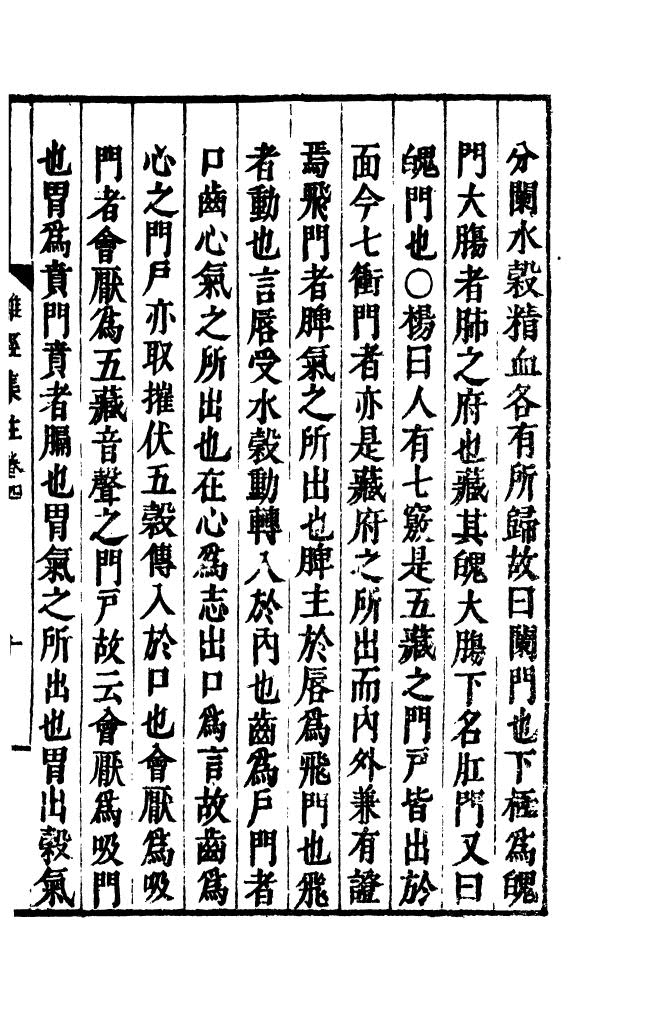 分闌水穀精血各有所歸故曰闌門也下極爲魄
門大膓者肺之府也藏其魄大膓下名肛門又曰
魄門也○楊曰人有七竅是五藏之門戸皆出於
面今七衝門者亦是藏府之所出而內外兼有證
焉飛門者脾氣之所出也脾主於唇爲飛門也飛
者動也言唇受水穀動轉入於內也齒爲戸門者
口齒心氣之所出也在心爲志出口爲言故齒爲
心之門戸亦取摧伏五穀傳入於口也會厭爲吸
門者會厭爲五藏音聲之門戸故云會厭爲吸門
也胃爲賁門賁者膈也胃氣之所出也胃出穀氣
難經集註卷四
十